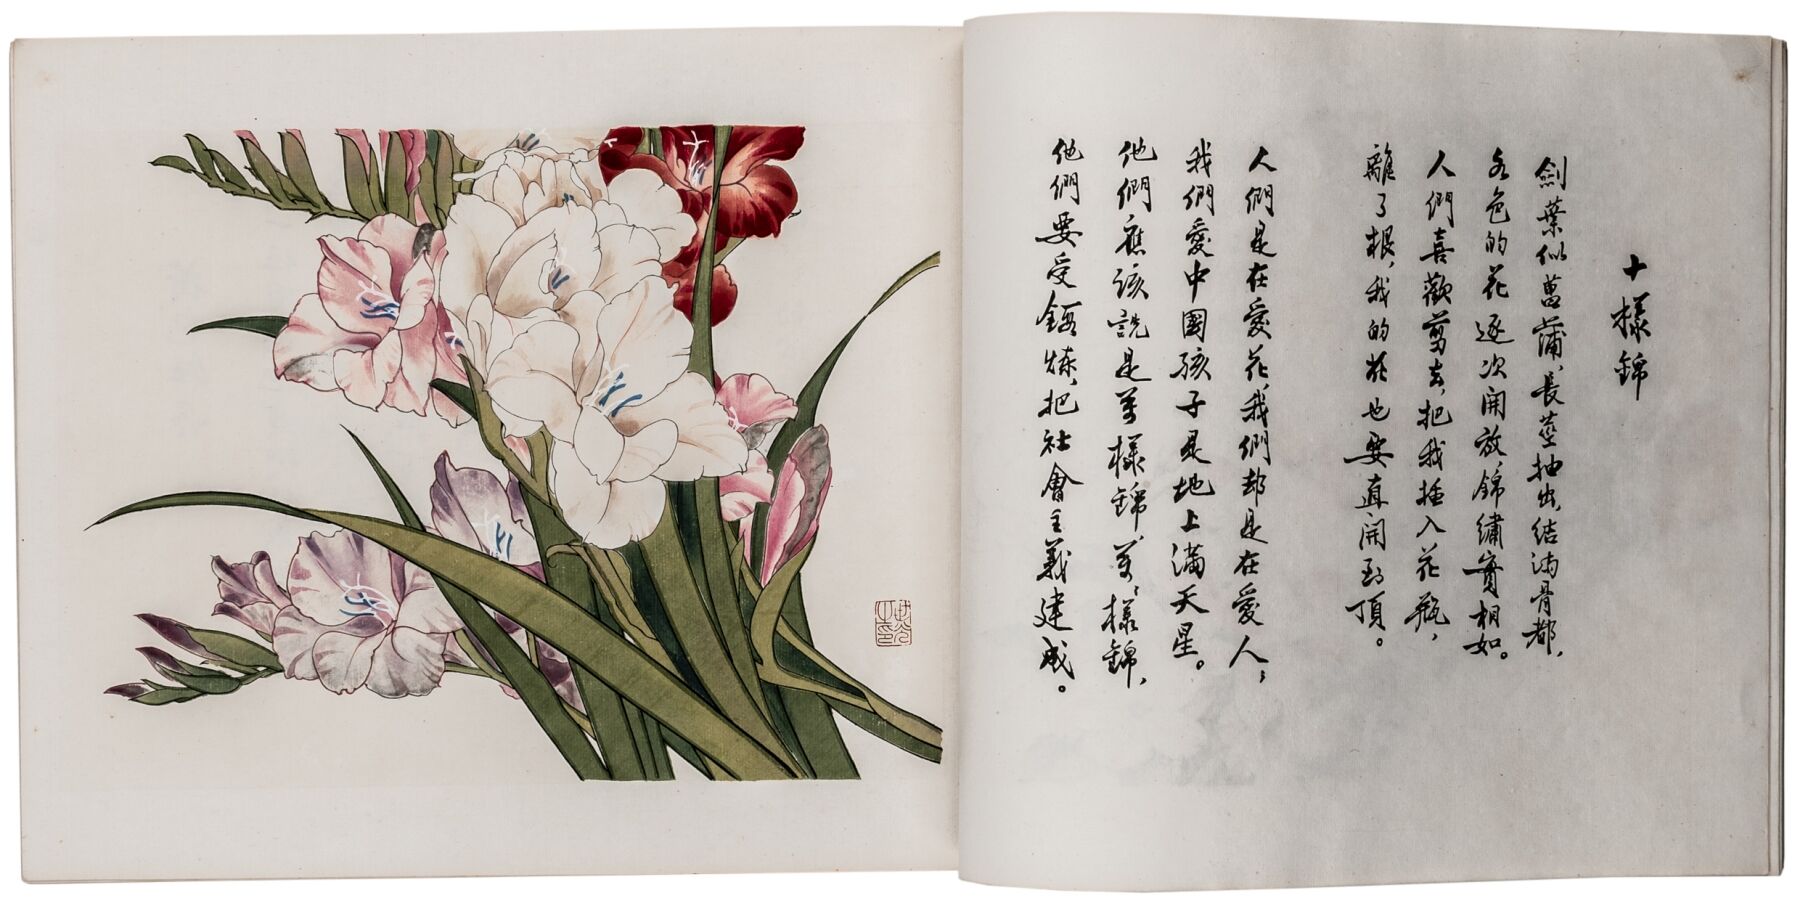 十樣錦
劍葉似菖蒲,長莖抽出,結滿骨都,
各色的花逐次開放,錦繡實相如。
人們喜歡剪去,把我插入花瓶,
離了根,我的花也要直開到頂。
人們是在愛花,我們却是在愛人;
我們愛中國孩子是地上滿天星。
他們應該說是萬樣錦,萬〻樣錦,
他們要受鍛煉,把社會主義建成。